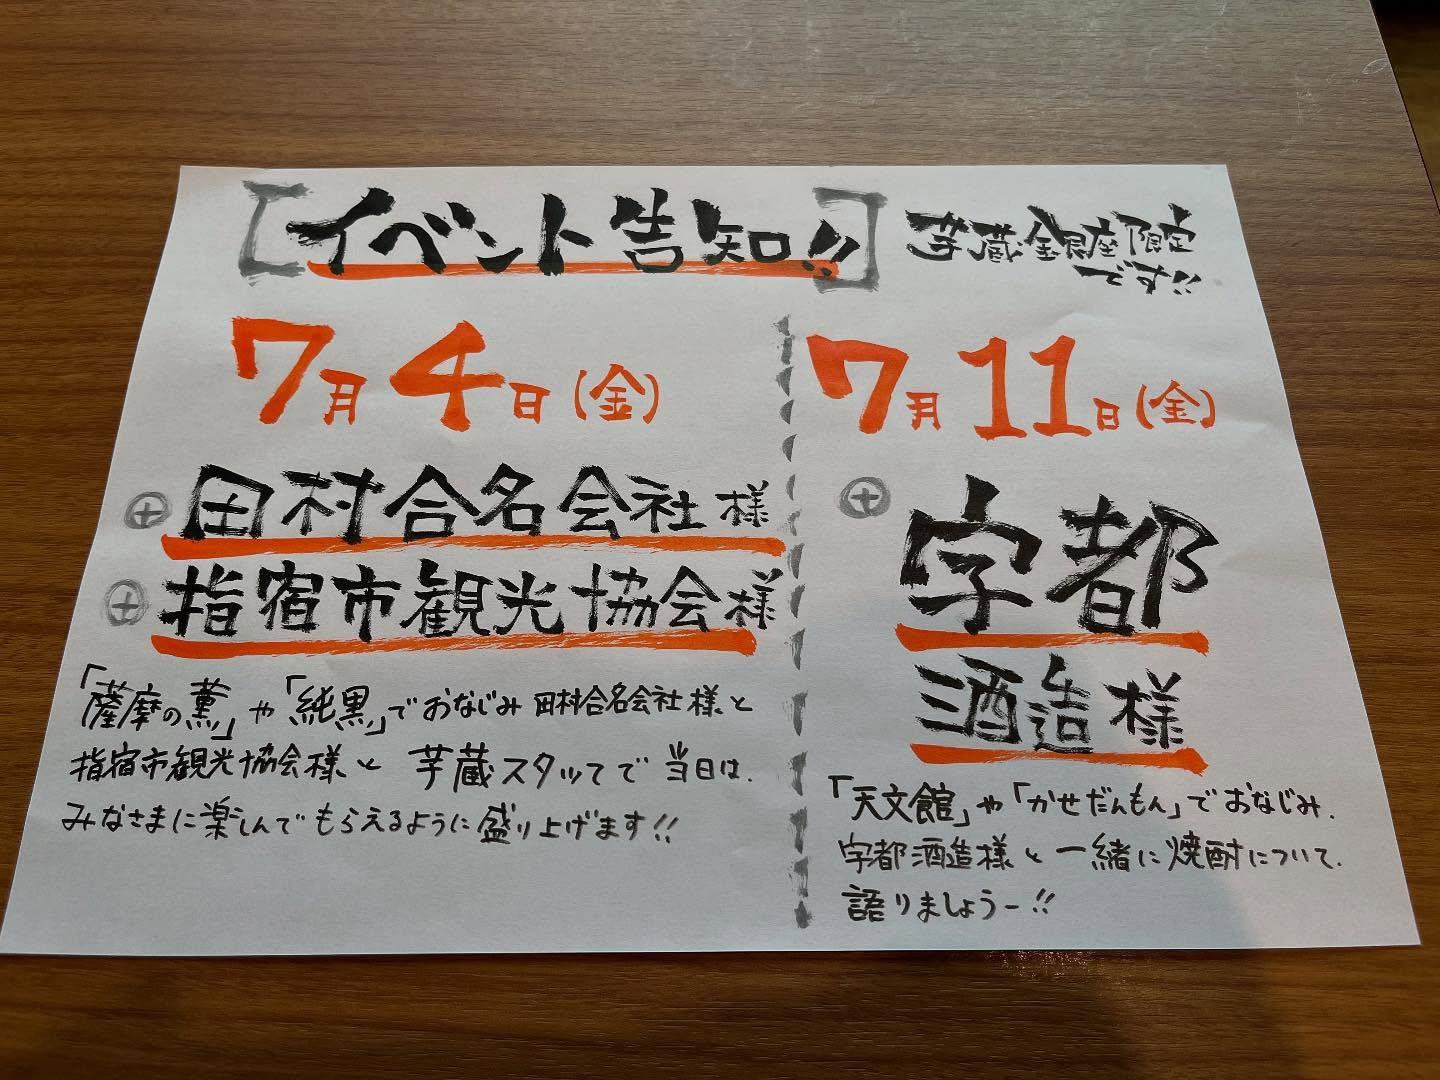 [イベント告知!!]
芋蔵金銀座限定
です!!
7月4日(金)
⊕田村合名会社様
⊕指宿市観光協会様
「薩摩の薫」や「純黒」でおなじみ田村合名会社様と
指宿市観光協会様と芋蔵スタッフで当日は、
みなさまに楽しんでもらえるように盛り上げます!!
7月11日(金)
⊕宇都
酒造様
「天文館」や「かせだんもん」でおなじみ、
宇都酒造様と一緒に焼酎について、
語りましょうー!!